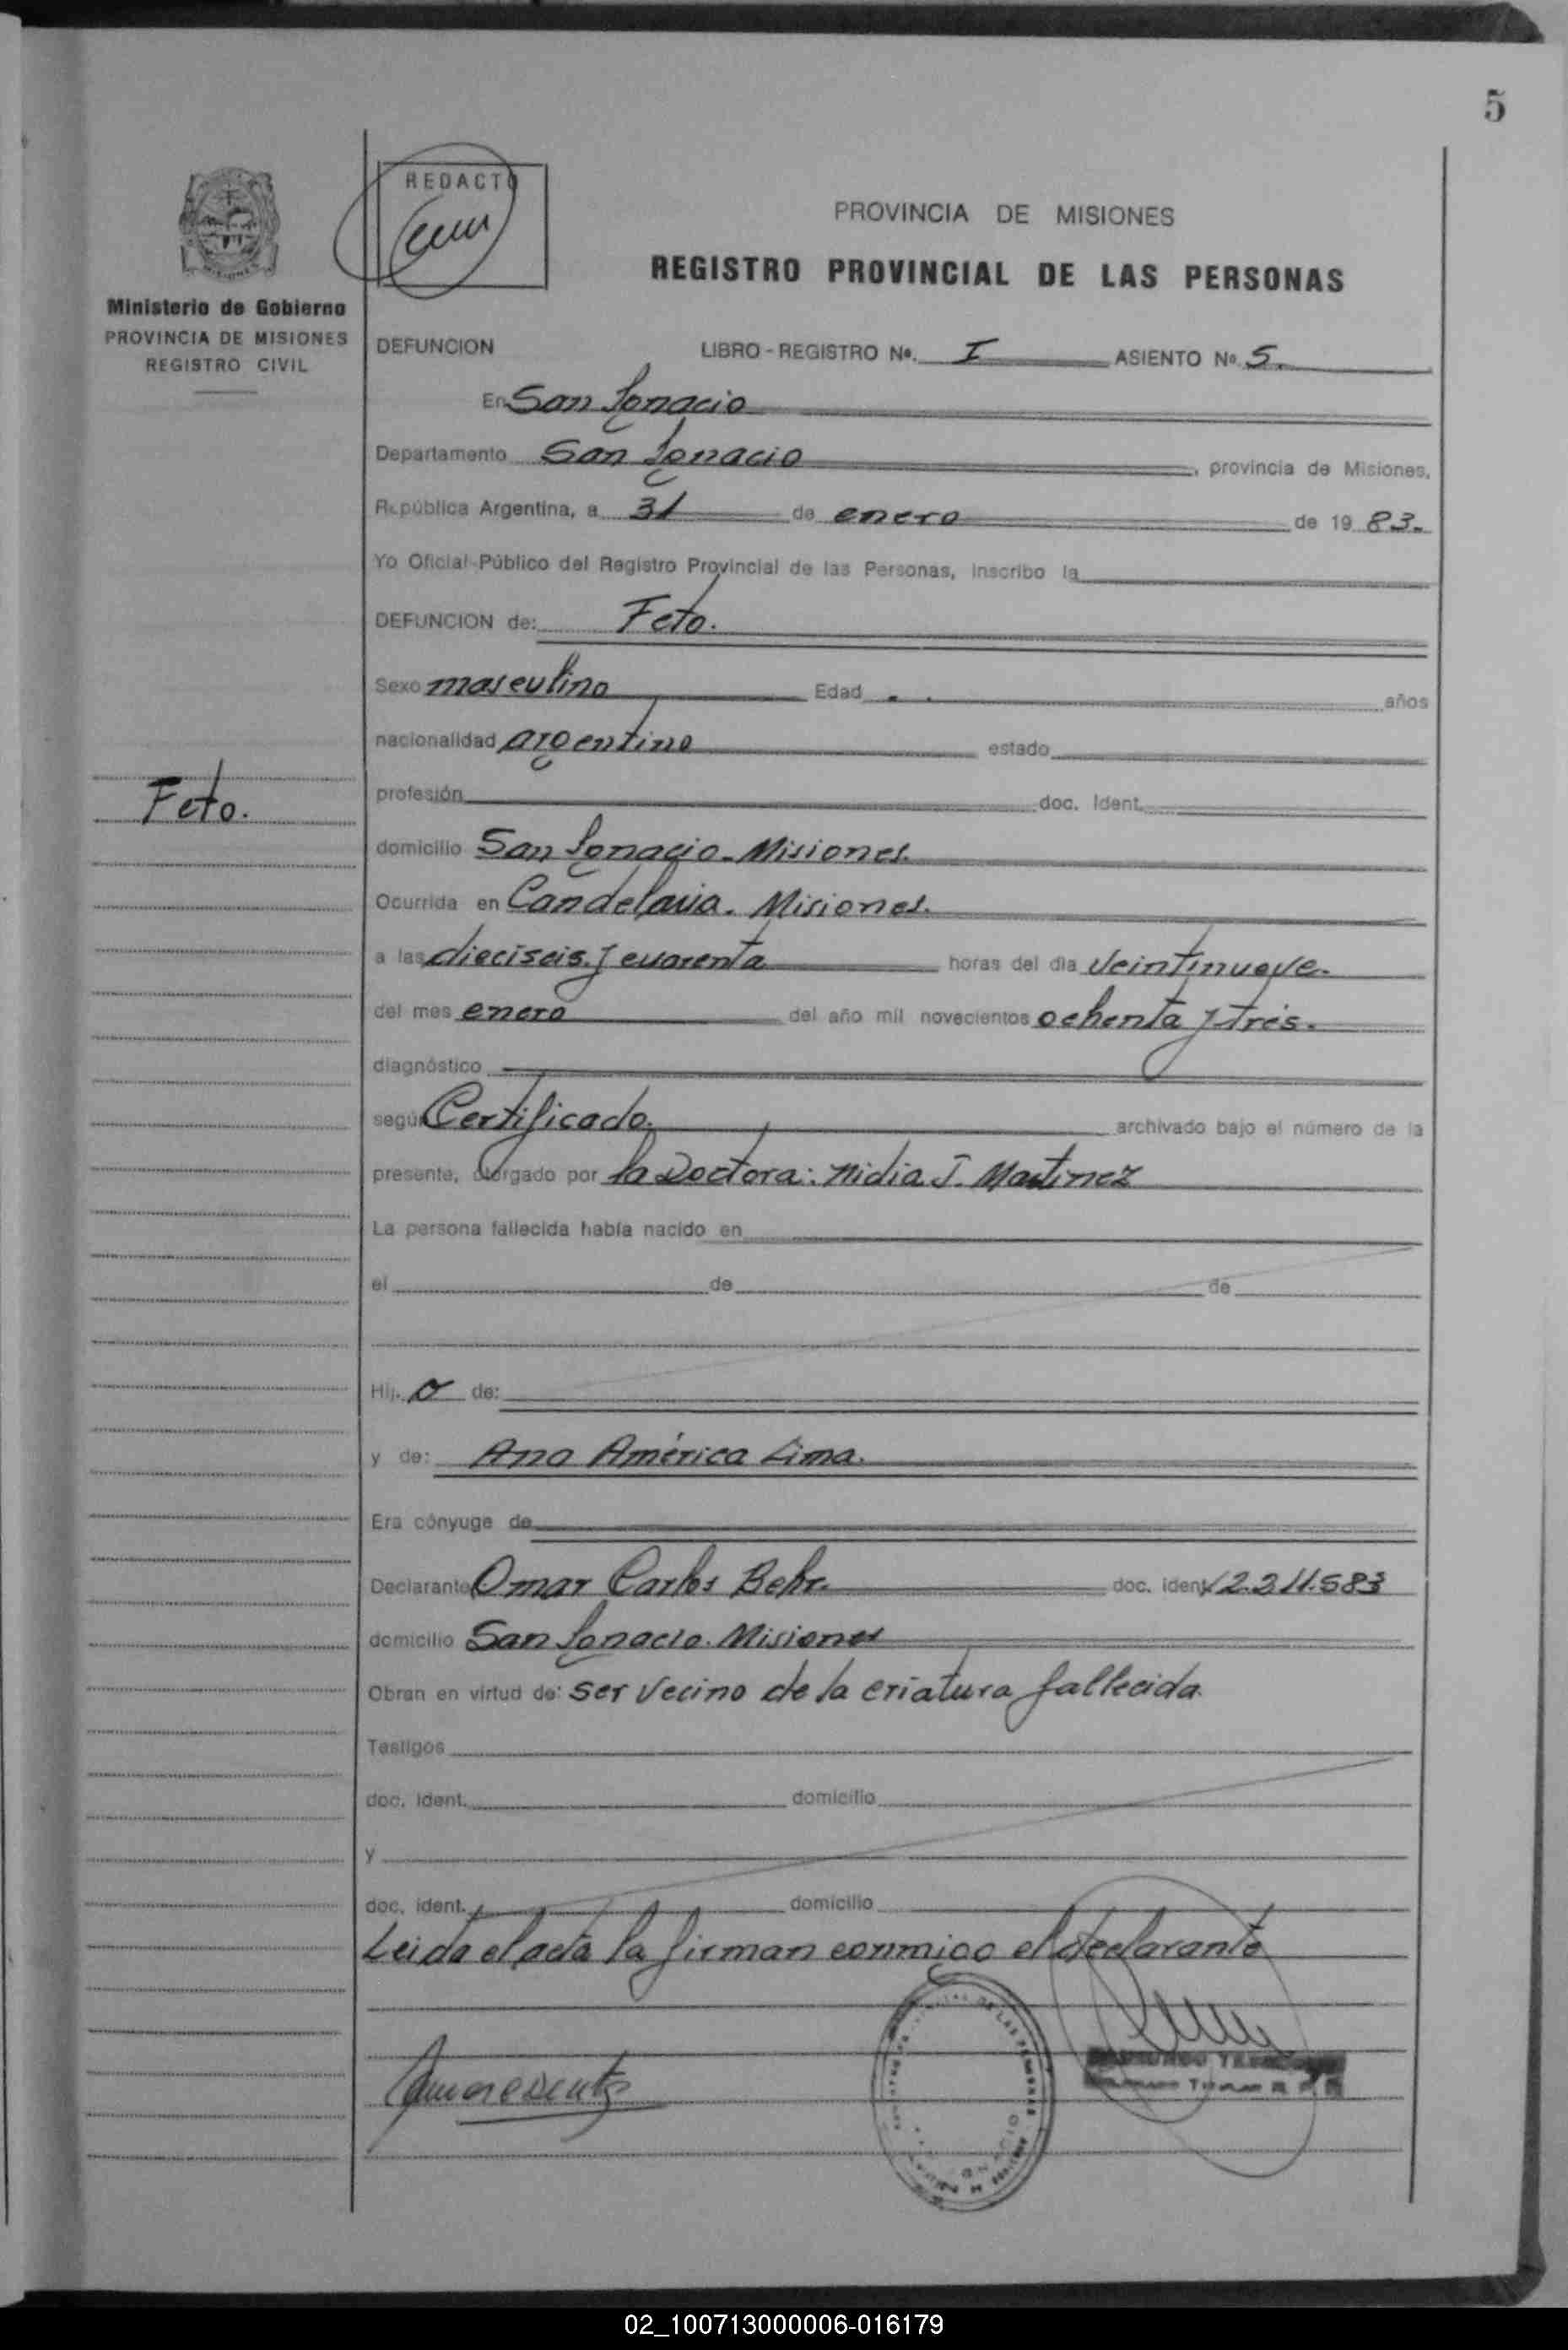 5
REDACTO
PROVINCIA DE MISIONES
REGISTRO PROVINCIAL DE LAS PERSONAS
Ministerio de Gobierno
PROVINCIA DE MISIONES
REGISTRO CIVIL
DEFUNCION LIBRO - REGISTRO Nº. I ASIENTO Nº 5.
En San Ignacio
Departamento San Ignacio, provincia de Misiones,
República Argentina, a 31 de enero de 19 83.
Yo Oficial Público del Registro Provincial de las Personas, inscribo la
DEFUNCION de: Feto.
Sexo masculino Edad - . años
nacionalidad argentino estado
profesión doc. Ident.
Feto.
domicilio San Ignacio - Misiones.
Ocurrida en Candelaria. Misiones.
a las dieciseis y cuarenta horas del día veintinueve.
del mes enero del año mil novecientos ochenta y tres.
diagnóstico
según Certificado. archivado bajo el número de la
presente, otorgado por la Doctora: Nidia J. Martinez
La persona fallecida había nacido en
el de de
Hij o de:
y de: Ana América Lima.
Era cónyuge de
Declarante Omar Carlos Behr. doc. ident. 12.211.583
domicilio San Ignacio. Misiones
Obran en virtud de: ser vecino de la criatura fallecida.
Testigos
doc. ident. domicilio
y
doc. ident. domicilio
Leida el acta la firman conmigo el declarante
02_100713000006-016179